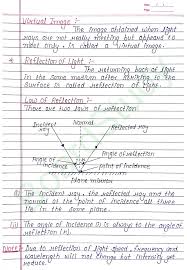 Virtual Image :-
The Image obtained when light
rays are not really meeting but appeared to
meet only, is called a virtual image.
* Reflection of Light :-
The returning back of light
in the same medium after striking to the
Surface is called reflection of light.
Law of Reflection :-
There are two laws of reflection:
Incident ray
Normal
Reflected ray
Angle of incidence
Angle of reflection
Point of Incidence
Plane mirror
(i) The incident ray, the reflected ray and the
normal at the point of incidence all three
lie in the same plane.
(ii) The angle of incidence (i) is always to the angle of
reflection (r).
Note: Due to reflection of light speed, frequency and
wavelength will not change but intensity get
reduce.